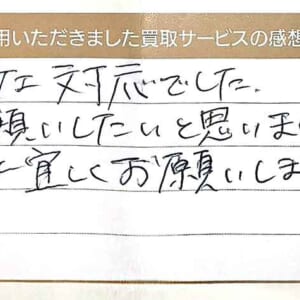 用いただきました買取サービスの感想
た対応でした。
願いしたいと思いま
宜しくお願いしま